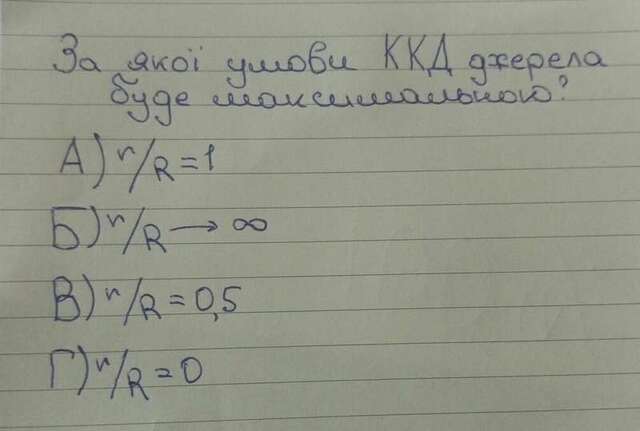 За якої умови ККД джерела
буде максимальною?
А) r/R = 1
Б) r/R → ∞
В) r/R = 0,5
Г) r/R = 0